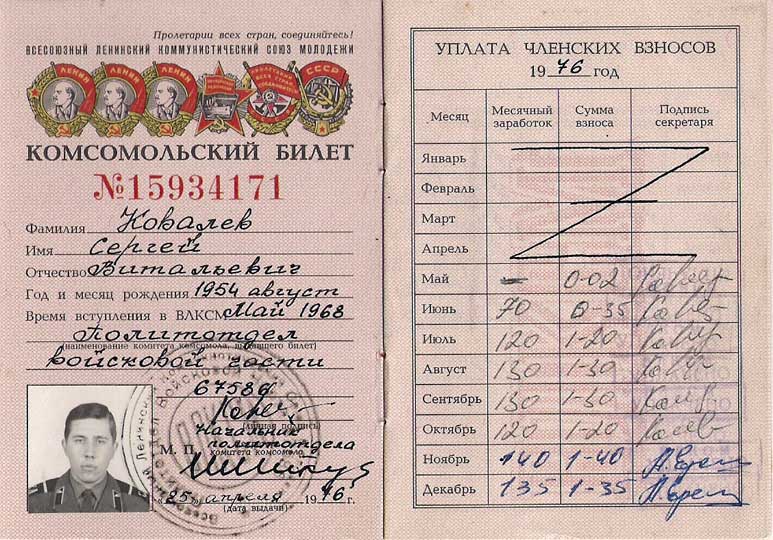 Пролетарии всех стран, соединяйтесь!
ВСЕСОЮЗНЫЙ ЛЕНИНСКИЙ КОММУНИСТИЧЕСКИЙ СОЮЗ МОЛОДЕЖИ
ЛЕНИН ЛЕНИН ЛЕНИН СССР
КОМСОМОЛЬСКИЙ БИЛЕТ
№15934171
Фамилия Ковалев
Имя Сергей
Отчество Витальевич
Год и месяц рождения 1954 август
Время вступления в ВЛКСМ Май 1968
Политотдел
(наименование комитета комсомола, выдавшего билет)
войсковой части
67586
(личная подпись)
Начальник
М. П. политотдела
комитета комсомола
"25" апреля 1976 г.
(дата выдачи)
УПЛАТА ЧЛЕНСКИХ ВЗНОСОВ
1976 год
Месяц Месячный заработок Сумма взноса Подпись секретаря
Январь
Февраль
Март
Апрель
Май — 0-02
Июнь 70 0-35
Июль 120 1-20
Август 130 1-30
Сентябрь 130 1-30
Октябрь 120 1-20
Ноябрь 140 1-40
Декабрь 135 1-35